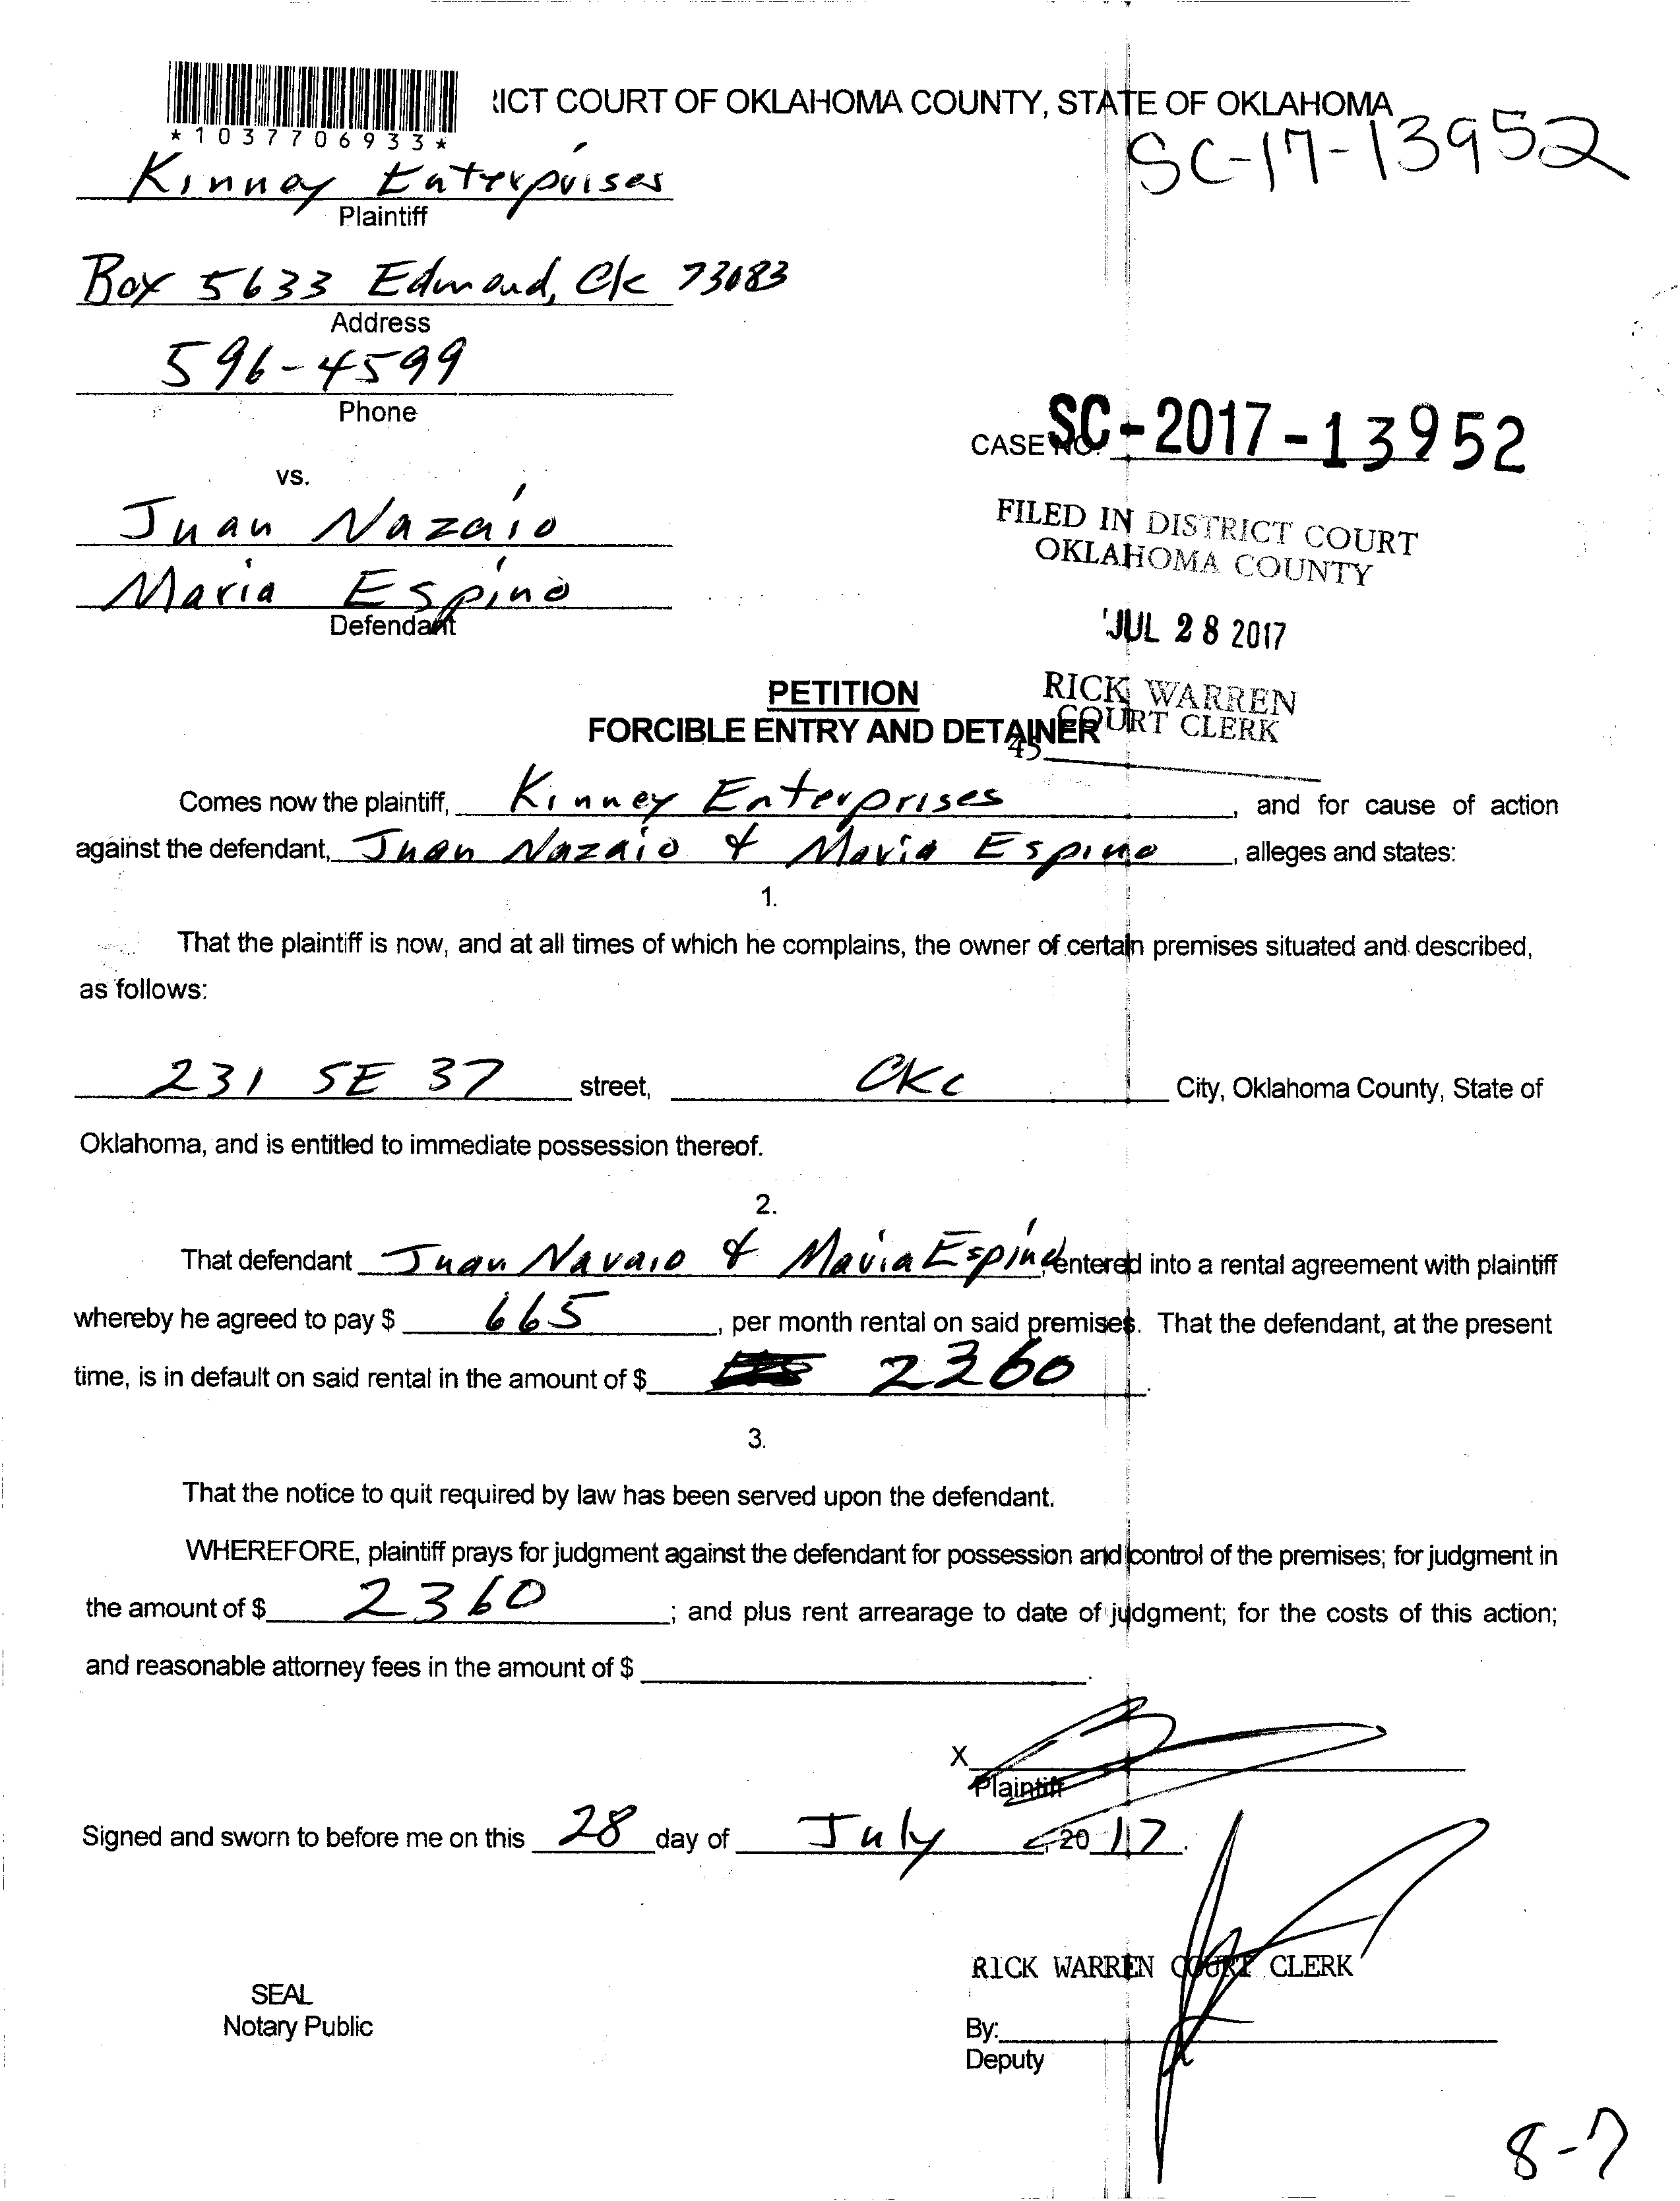 ICT COURT OF OKLAHOMA COUNTY, STATE OF OKLAHOMA
*1037706933*
SC-17-13952
Kinney Enterprises
Plaintiff
Box 5633 Edmond, Ok 73083
Address
596-4599
Phone
CASE NO. SC-2017-13952
vs.
FILED IN DISTRICT COURT
OKLAHOMA COUNTY
Juan Nazaio
Maria Espino
Defendant
JUL 28 2017
PETITION
RICK WARREN
COURT CLERK
FORCIBLE ENTRY AND DETAINER
45
Comes now the plaintiff, Kinney Enterprises, and for cause of action
against the defendant, Juan Nazaio & Maria Espino, alleges and states:
1.
That the plaintiff is now, and at all times of which he complains, the owner of certain premises situated and described,
as follows:
231 SE 37 street, OKC City, Oklahoma County, State of
Oklahoma, and is entitled to immediate possession thereof.
2.
That defendant Juan Navaio & Maria Espino, entered into a rental agreement with plaintiff
whereby he agreed to pay $ 665, per month rental on said premises. That the defendant, at the present
time, is in default on said rental in the amount of $ 2360.
3.
That the notice to quit required by law has been served upon the defendant.
WHEREFORE, plaintiff prays for judgment against the defendant for possession and control of the premises; for judgment in
the amount of $ 2360; and plus rent arrearage to date of judgment; for the costs of this action;
and reasonable attorney fees in the amount of $ .
X
Plaintiff
Signed and sworn to before me on this 28 day of July, 2017.
RICK WARREN COURT CLERK
SEAL
Notary Public
By:
Deputy
8-7